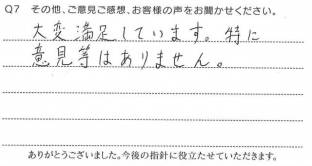 Q7 その他、ご意見ご感想、お客様の声をお聞かせください。
大変満足しています。特に
意見等はありません。
ありがとうございました。今後の指針に役立たせていただきます。